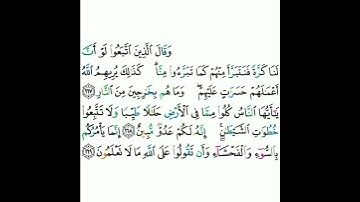 وَقَالَ ٱلَّذِينَ ٱتَّبَعُوا۟ لَوْ أَنَّ
لَنَا كَرَّةً فَنَتَبَرَّأَ مِنْهُمْ كَمَا تَبَرَّءُوا۟ مِنَّا ۗ كَذَٰلِكَ يُرِيهِمُ ٱللَّهُ
أَعْمَٰلَهُمْ حَسَرَٰتٍ عَلَيْهِمْ ۖ وَمَا هُم بِخَٰرِجِينَ مِنَ ٱلنَّارِ ١٦٧
يَٰٓأَيُّهَا ٱلنَّاسُ كُلُوا۟ مِمَّا فِى ٱلْأَرْضِ حَلَٰلًا طَيِّبًا وَلَا تَتَّبِعُوا۟
خُطُوَٰتِ ٱلشَّيْطَٰنِ ۚ إِنَّهُۥ لَكُمْ عَدُوٌّ مُّبِينٌ ١٦٨ إِنَّمَا يَأْمُرُكُم
بِٱلسُّوٓءِ وَٱلْفَحْشَآءِ وَأَن تَقُولُوا۟ عَلَى ٱللَّهِ مَا لَا تَعْلَمُونَ ١٦٩